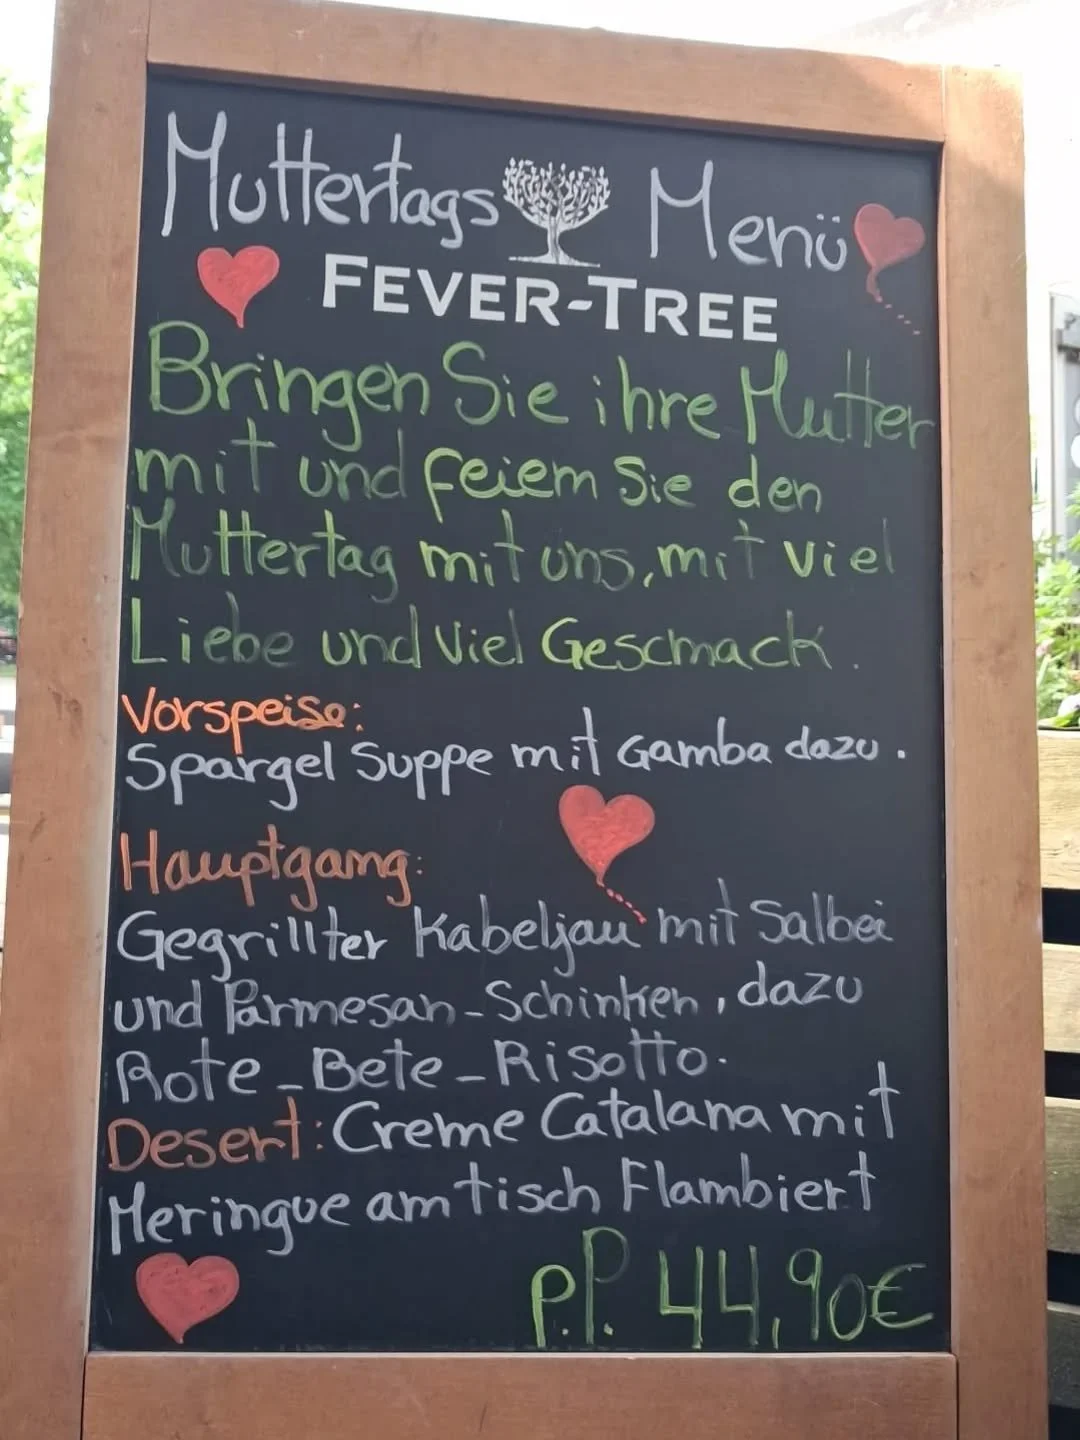 Muttertags Menü
FEVER-TREE
Bringen Sie ihre Mutter
mit und feiern Sie den
Muttertag mit uns, mit viel
Liebe und viel Geschmack.
Vorspeise:
Spargel Suppe mit Gamba dazu.
Hauptgang:
Gegrillter Kabeljau mit Salbei
und Parmesan-Schinken, dazu
Rote-Bete-Risotto.
Desert: Creme Catalana mit
Meringue am tisch Flambiert
P.P. 44,90€